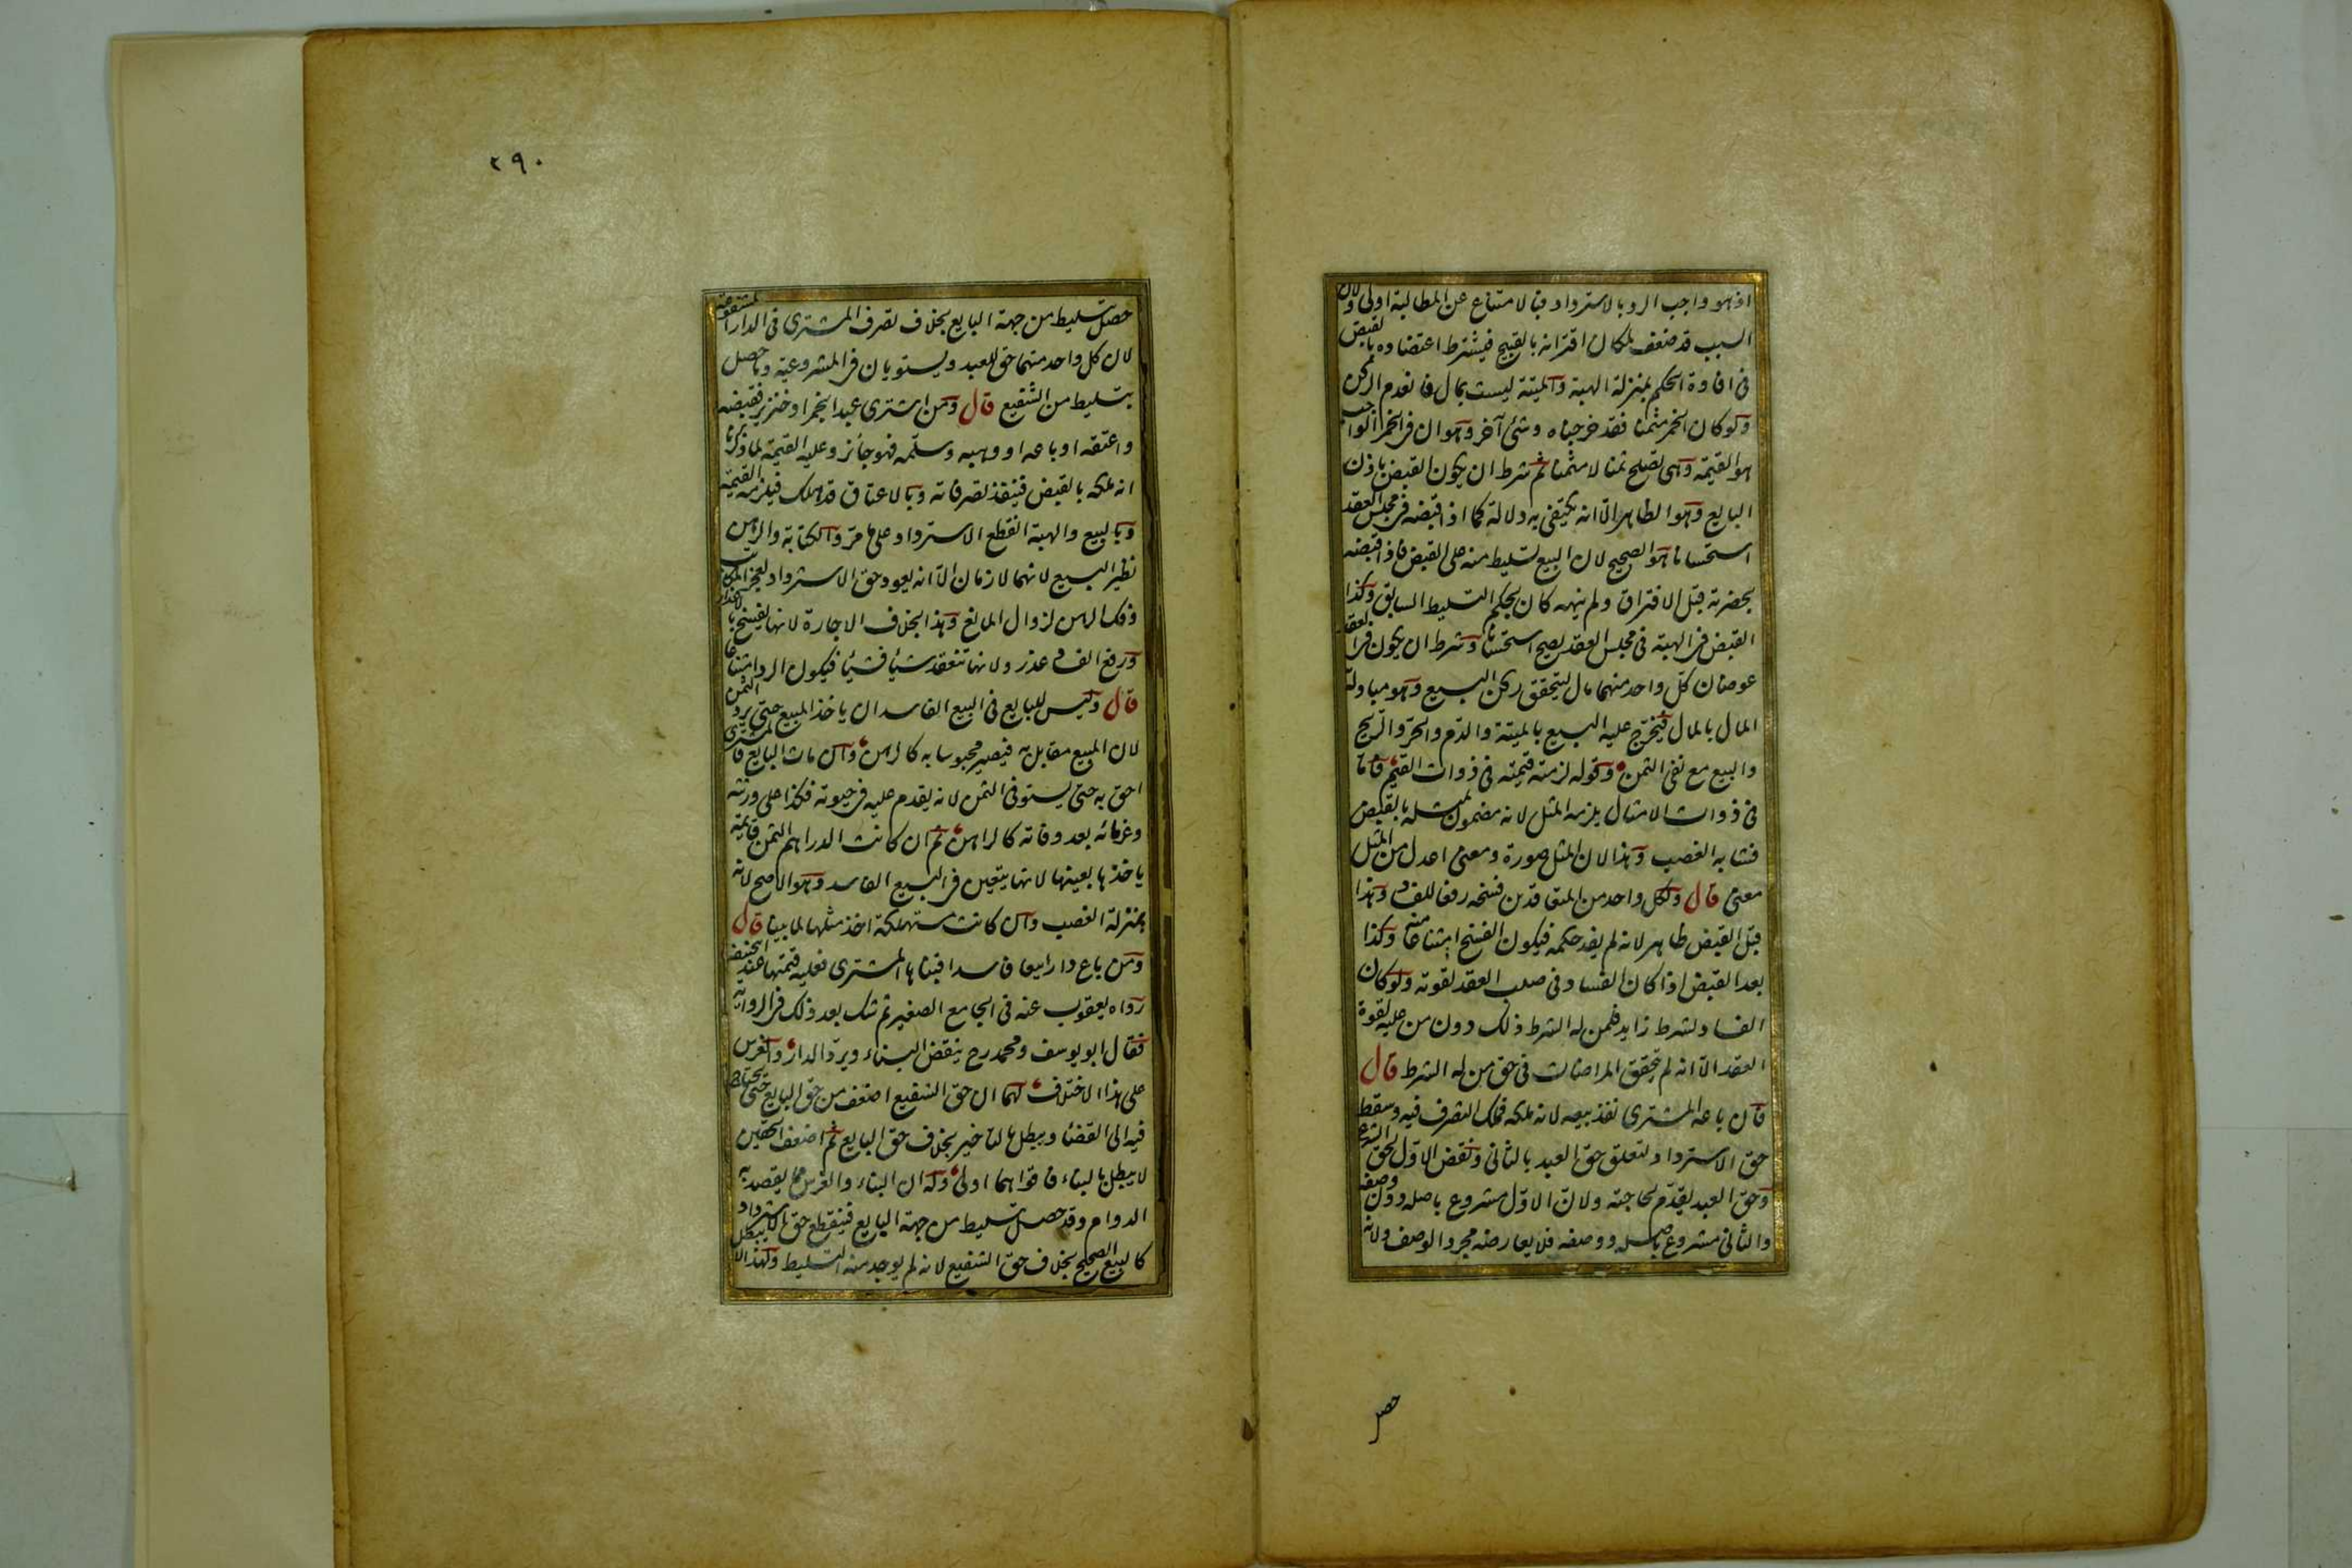 اذ هو واجب الرد بالاسترداد فبالامتناع عن المطالبة اولى ولان
السبب قد ضعف لمكان اقترانه بالقبيح فيشترط اعتضاده بالقبض
فى افادة الحكم بمنزلة الهبة والميتة ليست بمال فانعدم الركن
ولو كان الخمر مثمنا فقد خرجناه وشئ آخر وهو ان فى الخمر الواجب
هو القيمة وهى تصلح ثمنا لا مثمنا ثم شرط ان يكون القبض باذن
البايع وهو الظاهر الا انه يكتفى به دلالة كما اذا قبضه فى مجلس العقد
استحسانا هو الصحيح لان البيع تسليط منه على القبض فاذا قبضه
بحضرته قبل الافتراق ولم ينهه كان بحكم التسليط السابق وكذا
القبض فى الهبة فى مجلس العقد يصح استحسانا وشرط ان يكون فى العقد
عوضان كل واحد منهما مال ليتحقق ركن البيع وهو مبادلة
المال بالمال فيخرج عليه البيع بالميتة والدم والحر والريح
والبيع مع نفى الثمن وقوله لزمته قيمته فى ذوات القيم فاما
فى ذوات الامثال يلزمه المثل لانه مضمون بمثله بالقبض
فشابه الغصب وهذا لان المثل صورة ومعنى اعدل من المثل
معنى قال ولكل واحد من المتعاقدين فسخه رفعا للفساد وهذا
قبل القبض ظاهر لانه لم يفد حكمه فيكون الفسخ امتناعا منه وكذا
بعد القبض اذا كان الفساد فى صلب العقد لقوته ولو كان
الفساد لشرط زايد فلمن له الشرط ذلك دون من عليه لقوة
العقد الا انه لم يتحقق المراضات فى حق من له الشرط قال
فان باعه المشترى نفذ بيعه لانه ملكه فملك التصرف فيه وسقط
حق الاسترداد لتعلق حق العبد بالثانى ونقض الاول لحق الشرع
وحق العبد يقدم لحاجته ولان الاول مشروع باصله دون وصفه
والثانى مشروع باصله ووصفه فلا يعارضه مجرد الوصف ولانه
حصل
٢٩٠
حصل بتسليط من جهة البايع بخلاف تصرف المشترى فى الدار المشفوعة
لان كل واحد منهما حق للعبد ويستويان فى المشروعية وما حصل
بتسليط من الشفيع قال ومن اشترى عبدا بخمر او خنزير فقبضه
واعتقه او باعه او وهبه وسلمه فهو جائز وعليه القيمة لما ذكرنا
انه ملكه بالقبض فينفذ تصرفاته وبالاعتاق قد هلك فيلزمه القيمة
وبالبيع والهبة انقطع الاسترداد على ما مر والكتابة والرهن
نظير البيع لانهما لازمان الا انه يعود حق الاسترداد لعجز المكاتب
وفك الرهن لزوال المانع وهذا بخلاف الاجارة لانها تفسخ بالاعذار
ورفع الفساد عذر ولانها تنعقد شيأ فشيأ فيكون الرد امتناعا
قال وليس للبايع فى البيع الفاسد ان ياخذ المبيع حتى يرد الثمن
لان المبيع مقابل به فيصير محبوسا به كالرهن وان مات البايع فالمشترى
احق به حتى يستوفى الثمن لانه يقدم عليه فى حيوته فكذا على ورثته
وغرمائه بعد وفاته كالراهن ثم ان كانت الدراهم الثمن قايمة
ياخذها بعينها لانها يتعين فى البيع الفاسد وهو الاصح لانه
بمنزلة الغصب وان كانت مستهلكة اخذ مثلها لما بينا قال
ومن باع دارا بيعا فاسدا فبناها المشترى فعليه قيمتها عند ابى حنيفة
رواه يعقوب عنه فى الجامع الصغير ثم شك بعد ذلك فى الرواية
فقال ابو يوسف ومحمد رح ينقض البناء ويرد الدار والغرس
على هذا الاختلاف لهما ان حق الشفيع اضعف من حق البايع حتى يحتاج
فيه الى القضا ويبطل بالتاخير بخلاف حق البايع ثم اضعف الحقين
لا يبطل بالبناء فاقواهما اولى وله ان البناء والغرس مما يقصد به
الدوام وقد حصل بتسليط من جهة البايع فينقطع حق الاسترداد
كالبيع الصحيح بخلاف حق الشفيع لانه لم يوجد منه التسليط ولهذا لا يبطل